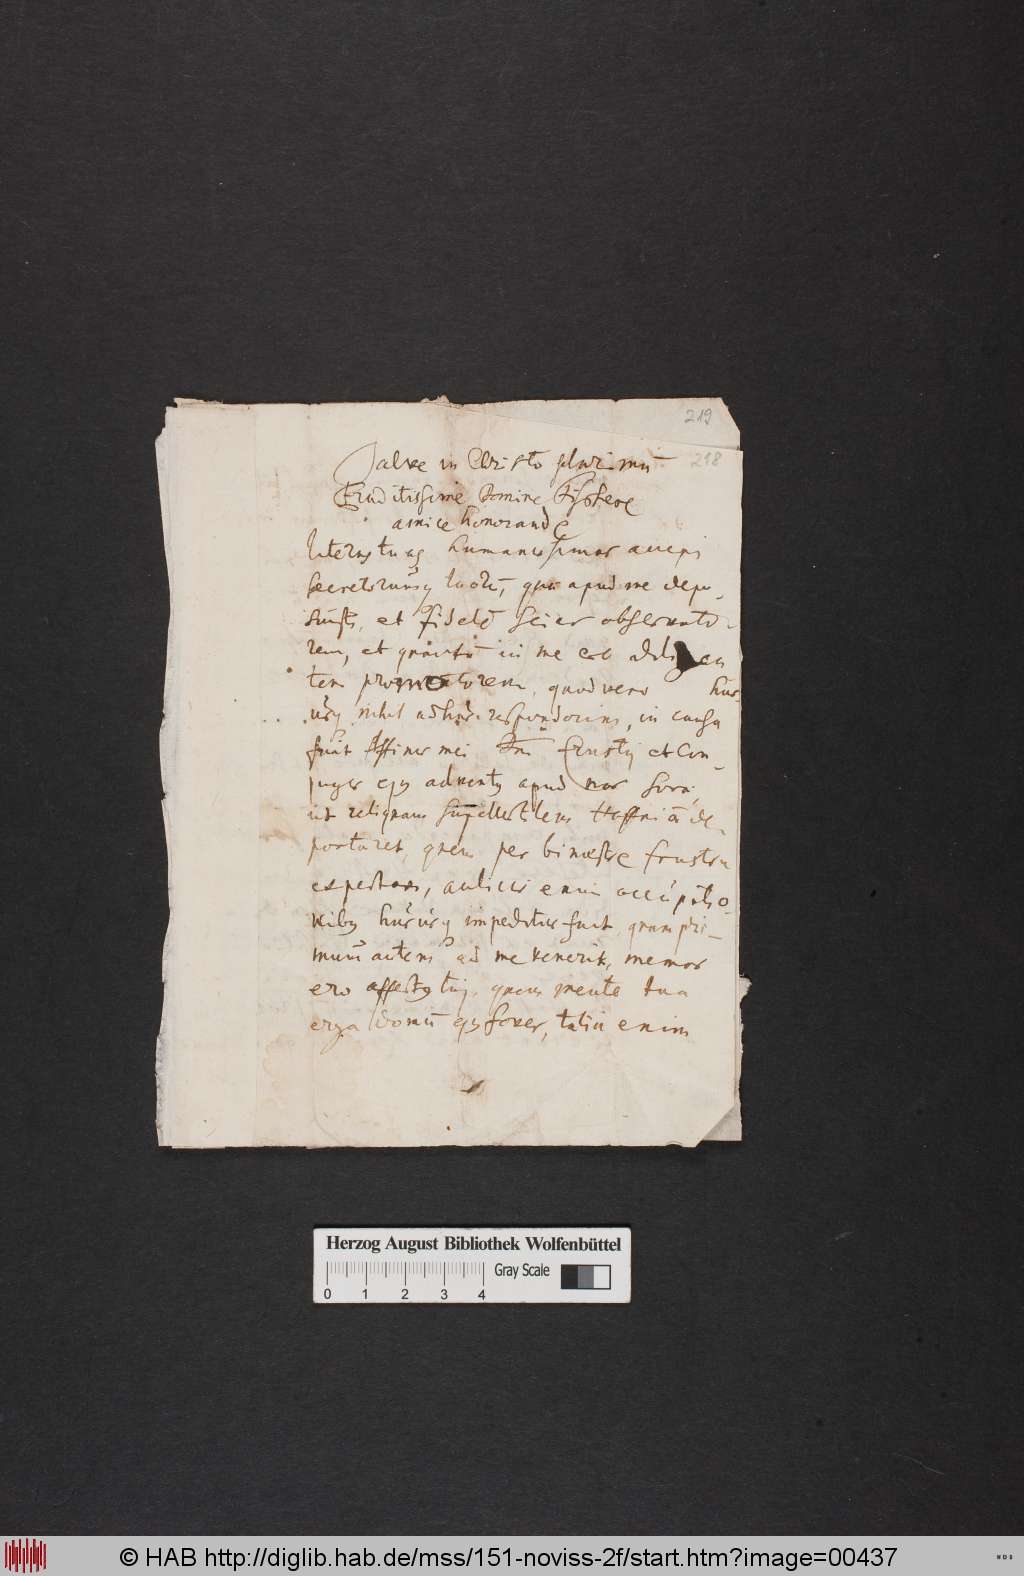 219
218
Salve in Christo plurimū
Eruditissime Domine Fischere
amice honorande
literas tuas humanissimas accepi
secretorumq tuorū, quæ apud me depo-
suisti, et fidelē scies observato-
rem, et quantū in me est diligen
tem promotorem, quod vero huc
usq nihil adhuc responderim, in causa
fuit Affinis mei Dn. Ernestij et con-
jugis ejus adventus apud nos Soræ,
ut reliquam supellectilem Haffniā de-
portaret, quem per bimestre frustra
expectavi, aulicis enim occupatio-
nibus hucusq impeditus fuit, quam pri-
mum autem ad me venerit, memor
ero affectus tui, quem mente tua
erga domū ejus foves, talia enim
Herzog August Bibliothek Wolfenbüttel
Gray Scale
0 1 2 3 4
© HAB http://diglib.hab.de/mss/151-noviss-2f/start.htm?image=00437